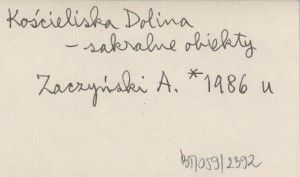 Kościeliska Dolina
- sakralne obiekty
Zaczyński A. *1986 u
BT/059/2392